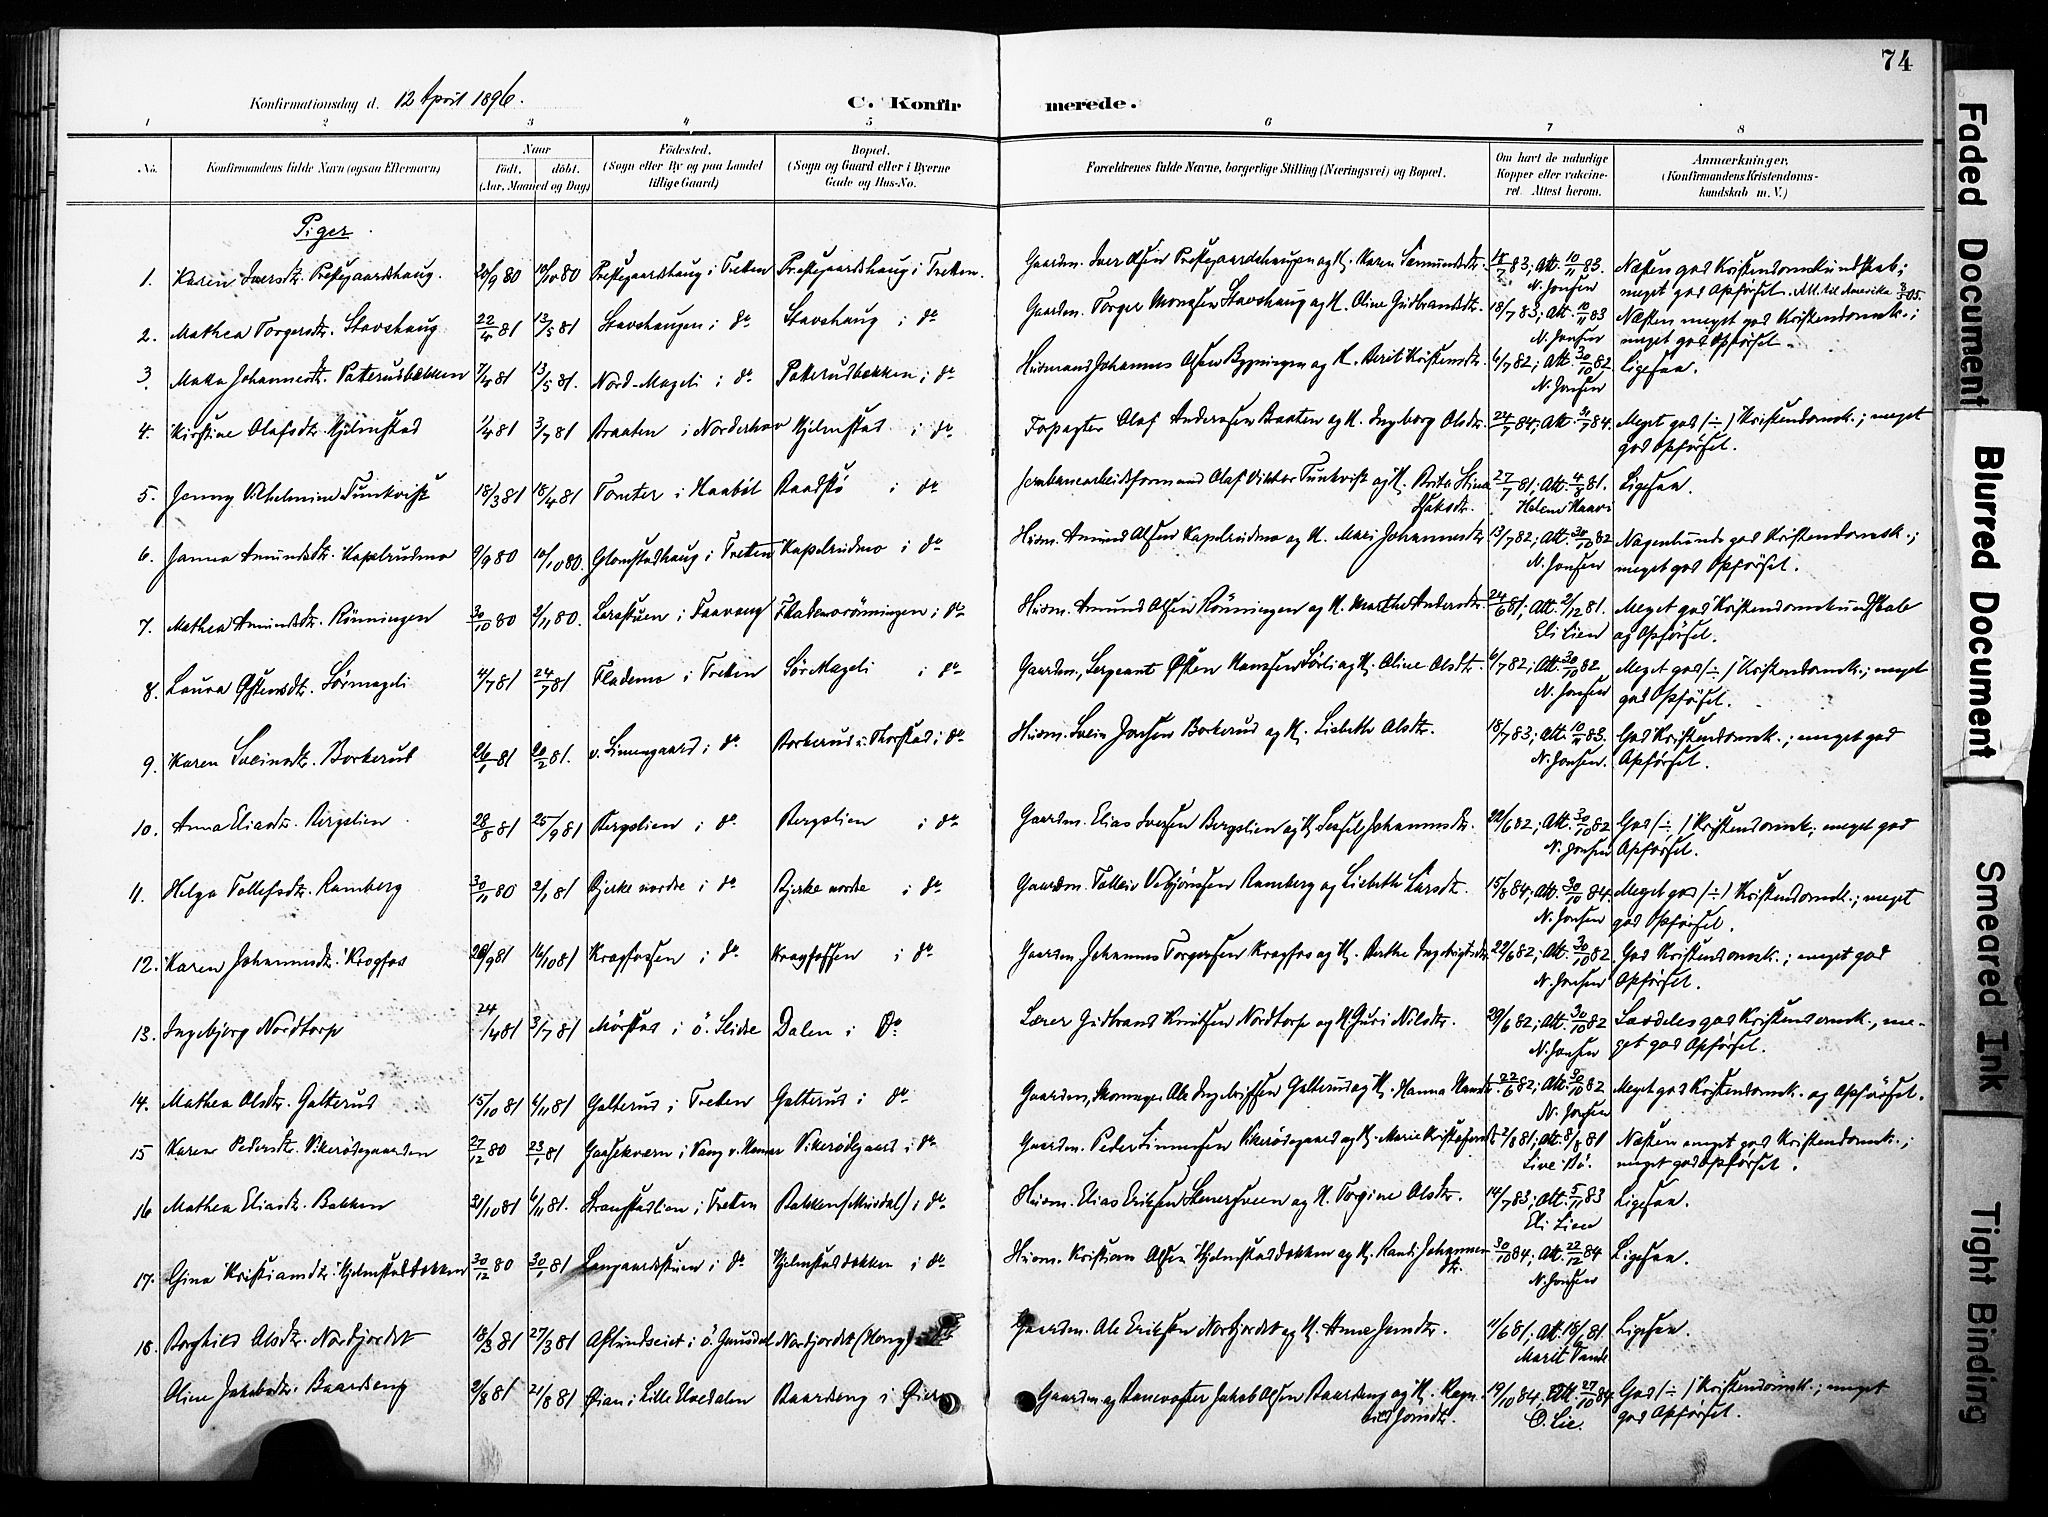 74
Konfirmationsdag d. 12 April 1896. C. Konfirmerede.
1 2 3 4 5 6 7 8
No. Konfirmandens fulde Navn (ogsaa Efternavn) Naar født. døbt. (Aar, Maaned og Dag) Fødested. (Sogn eller By og paa Landet tillige Gaard) Bopæl. (Sogn og Gaard eller i Byerne Gade og Hus-No. Forældrenes fulde Navne, borgerlige Stilling (Næringsvei) og Bopæl. Om havt de naturlige Kopper eller vaccineret. Attest herom. Anmærkninger. (Konfirmandens Kristendomskundskab m. V.)
Piger.
1. Karen Iversdtr. Prestegaardshaug. 20/9 80 10/10 80 Prestegaardshaug i Tretten Prestegaardshaug i Tretten. Gaardm. Iver Olsen Prestegaardshaugen og H. Karen Simensdtr. 18/7 83; Att. 10/11 83. N. Jonsen Næsten god Kristendomskundskab; meget god Opførsel. Att. til Amerika 05.
2. Mathea Torgersdtr. Stavshaug 22/4 81 13/5 81 Stavshaugen i do Stavshaug i do Gaardm. Torger Monssen Stavshaug og H. Oline Gudbransdtr. 18/7 83; Att. 10/11 83 N. Jonsen Næsten meget god Kristendomsk.; meget god Opførsel.
3. Johannesdtr. Paterudbakken 7/4 81 13/5 81. Nord-Mageli i do Paterudbakken i do Husmand Johannes Olsen Bygningen og H. Berit Kristensdtr. 6/7 82; Att. 30/10 82 N. Jonsen Ligesaa.
4. Kirstine Olafsdtr. Hjelmstad 1/4 81 3/7 81 Braaten i Norderhov Hjelmstad i do Forpagter Olaf Andersen Braaten og H. Ingeborg Olsdtr. 24/7 84; Att. 31/7 84. Meget god (÷) Kristendomsk.; meget god Opførsel.
5. Jenny Vilhelmine Tunkvist 18/3 81 18/4 81 Tomter i Haabøl Baadstø i do Jernbanearbeidsformand Olaf Viktor Tunkvist og H. Brita Stina 27/7 81; Att. 4/8 81. Ligesaa.
6. Janna Amundsdtr. Kapelrudmo 9/9 80 10/10 80. Glomstadhaug i Tretten Kapelrudmo i do Husm. Amund Olsen Kapelrudmo og H. Mari Johannesdtr 13/7 82; Att. 30/10 82 N. Jonsen Nogenlunde god Kristendomsk.; meget god Opførsel.
7. Mathea Amundsdtr. Rønningen 30/10 80 2/11 80. Larsstuen i Faavang Flademorønningen i do Husm. Amund Olsen Rønningen og H. Marthe Andersdtr. 24/6 81; Att. 2/12 81. Eli Lien Meget god Kristendomskundskab og Opførsel.
8. Laura Østensdtr. Sørmageli 4/7 81 24/7 81 Flademo i Tretten Sør Mageli i do Gaardm., Sergeant Østen Hanssen Sørli og H. Oline Olsdtr. 6/7 82; Att. 30/10 82 N. Jonsen Meget god (÷) Kristendomsk.; meget god Opførsel.
9. Karen Sveinsdtr. Borkerud 26/1 81 20/2 81. v. Linnengaard i do Borkerud u. Thorstad i do Husm. Svein Jonsen Borkerud og H. Lisbeth Olsdtr. 18/7 83; Att. 10/11 83. N. Jonsen. God Kristendomsk.; meget god Opførsel.
10. Anna Eliasdtr. Bergslien 28/8 81 25/9 81 Bergslien i do Bergslien i do Gaardm. Elias Iversen Bergslien og H. Sessel Johannesdtr. 22/6 82; Att. 30/10 82 N. Jonsen God (÷) Kristendomsk.; meget god Opførsel.
11. Helga Tollefsdtr. Ramberg 30/11 80 2/1 81 Bjerke nordre i do Bjerke nordre i do Gaardm. Tolleiv Vebjørnsen Ramberg og Lisbeth Larsdtr. 15/8 84; Att. 30/10 84. N. Jonsen Meget god (÷) Kristendomsk.; meget god Opførsel.
12. Karen Johannesdtr. Krogfos 20/9 81 16/10 81 Krogfossen i do Krogfossen i do Gaardm. Johannes Torgersen Krogfos og H. Berthe Ingebrigtsdtr. 22/6 82; Att. 30/10 82. N. Jonsen God Kristendomsk.; meget god Opførsel.
13. Ingebjørg Nordtorp 24/4 81 3/7 81 Mørstad i Ø. Slidre Dalen i do Lærer Gudbrand Knutsen Nordtorp og H. Guri Nilsdtr. 29/6 82; Att. 30/10 82 N. Jonsen Særdeles god Kristendomsk., meget god Opførsel.
14. Mathea Olsdtr. Galterud 15/10 81 6/11 81 Galterud i Tretten Galterud i do Gaardm., Skomager Ole Ingebrigtsen Galterud og H. Hanna Hansdtr. 22/6 82; Att. 30/10 82 N. Jonsen Meget god Kristendomsk. og Opførsel.
15 Karen Pedersdtr. Vikerødegaarden 27/12 80 23/1 81 Gaasekværn i Vang v. Hamar Vikerødegaard i do Gaardm. Peder Linnensen Vikerødegaard og H. Marie Kristofersdtr. 2/8 81; Att. 8/8 81 Live Bø. Næsten meget god Kristendomsk.; meget god Opførsel.
16 Mathea Eliasdtr. Bakken 31/10 81 6/11 81. Strandstadlien i Tretten Bakken (Musdal) i do Husm. Elias Eriksen Stenersveen og H. Torgine Olsdtr. 14/7 83; Att. 5/11 83 Eli Lien Ligesaa.
17. Gina Kristiansdtr. Hjelmstadbakken 30/12 80 30/1 81 Langaardsstuen i do Hjelmstadbakken i do Husm. Kristian Olsen Hjelmstadbakken og H. Randi Johannesdtr. 30/10 84; Att. 22/12 84 N. Jonsen Ligesaa.
18. Borghild Olsdtr. Nordfjordet 18/3 81 27/3 81 i Ø. Gausdal Nordfjordet (Haug) Gaardm. Ole Eriksen Nordfjordet og H. Anne Jonsdtr. 11/6 81; Att. 18/6 81. Marit Tande Ligesaa.
Oline Jakobsdtr. Baardseng 2/8 81 21/8 81 Øian i Lille Elvedalen Baardseng i Øier Gaardm. og Banevogter Jakob Olsen Baardseng og H. Ragnhild Jonsdtr. 19/10 84. Att. 27/10 84 O. Lie. God (÷) Kristendomsk.; meget god Opførsel.
Faded Document
Blurred Document
Smeared Ink
Tight Binding